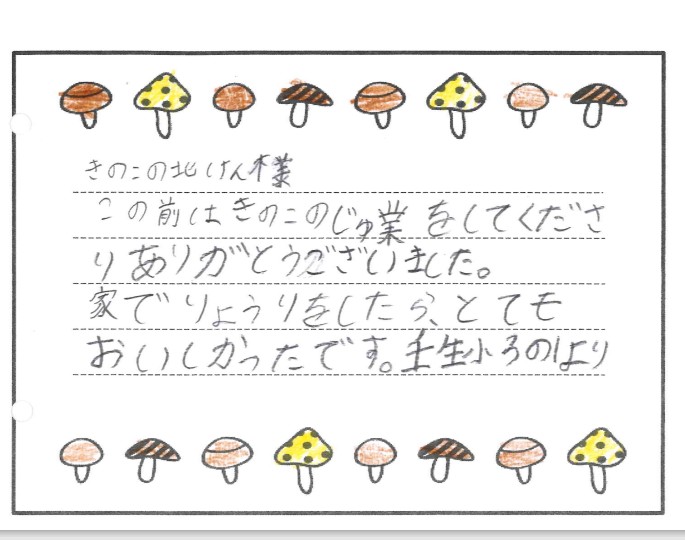 きのこの北けん様
この前はきのこのじゅ業をしてくださ
りありがとうございました。
家でりょうりをしたら、とても
おいしかったです。壬生小3の1より